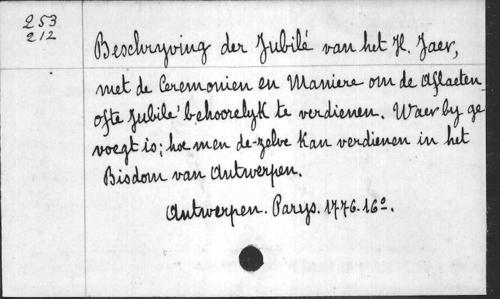 253
212
Beschryving der Jubilé van het H. Jaer,
met de Ceremonien en Maniere om de Aflaeten
ofte Jubile' behoorelyk te verdienen. Waer by ge
voegt is; hoe men de-zelve kan verdienen in het
Bisdom van Antwerpen.
Antwerpen. Parys. 1776. 16°.